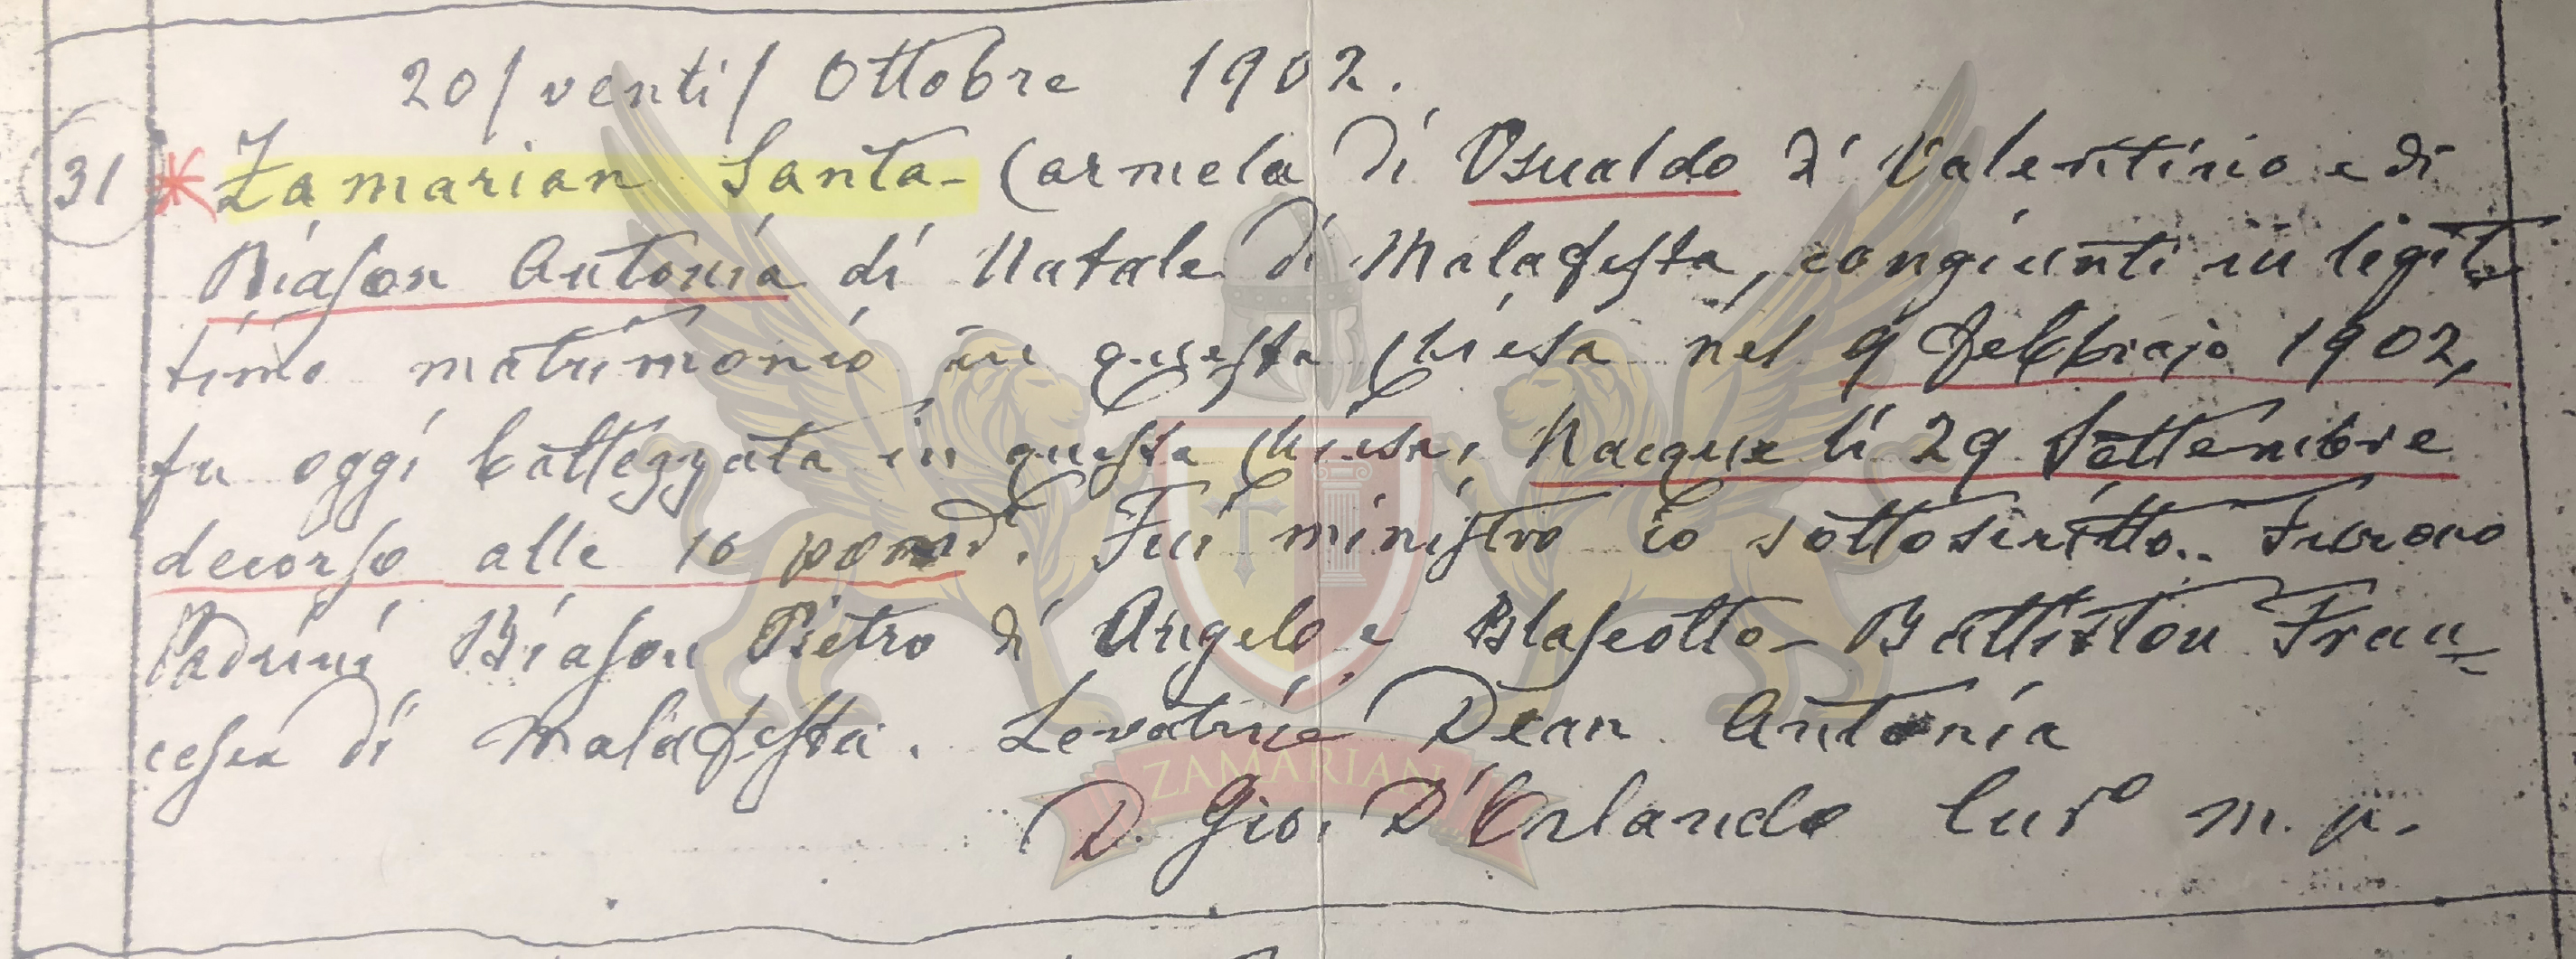 20/venti/ Ottobre 1902.
31 * Zamarian Santa-Carmela di Osualdo di Valentino e di
Biason Antonia di Natale di Malafesta, congiunti in legit-
timo matrimonio in questa Chiesa nel 9 febbrajo 1902,
fu oggi battezzata in questa Chiesa. Nacque li 29 Settembre
decorso alle 10 pomd. Fui ministro io sottoscritto. Furono
Padrini Biason Pietro di Angelo e Blaseotto-Battiston Fran=
cesca di Malafesta. Levatrice Dean Antonia
D. Gio. D'Orlando Cur.o m. p.
ZAMARIAN